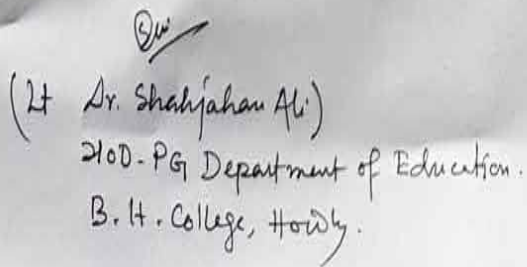 (Lt Dr. Shahjahan Ali)
HOD-PG Department of Education.
B.H. College, Howly.